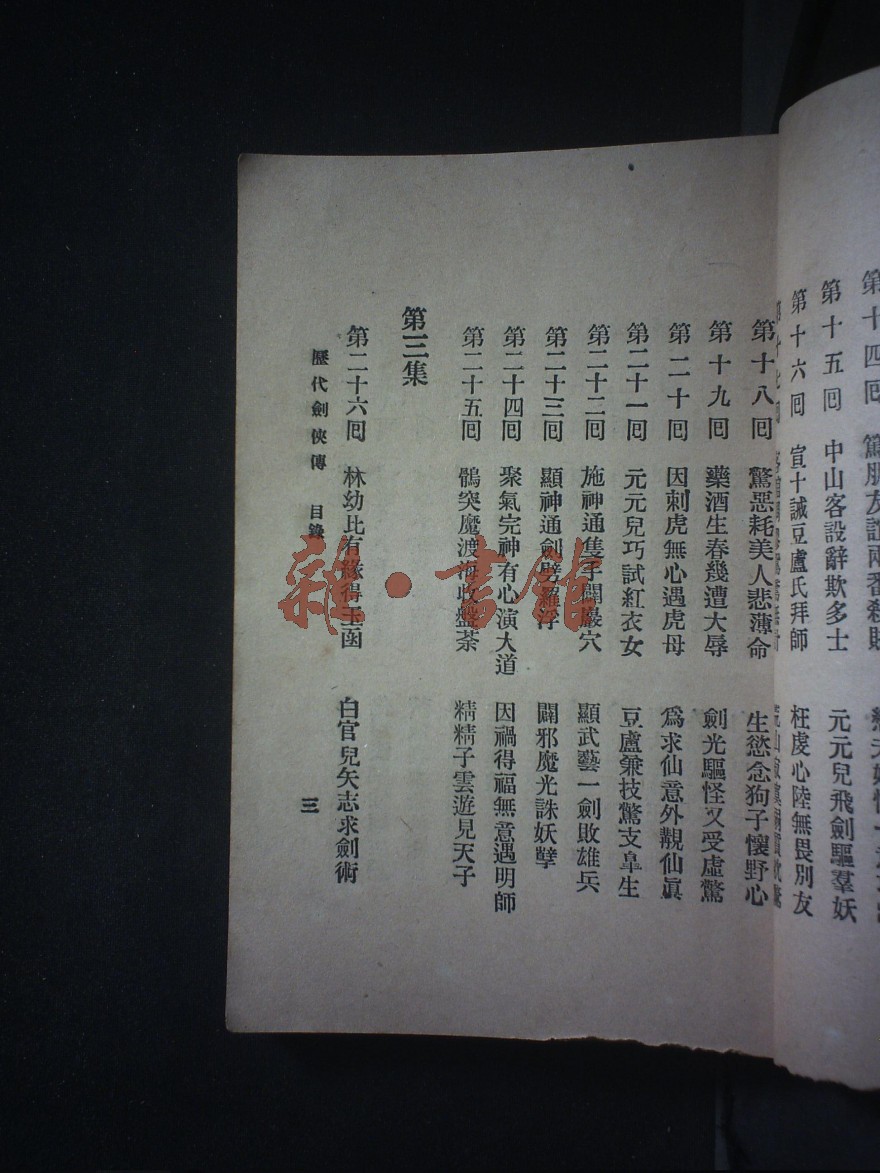 第十四囘
第十五囘 中山客設辭欺多士 元元兒飛劍驅羣妖
第十六囘 宣十誡豆盧氏拜師 枉虔心陸無畏別友
第十八囘 驚惡耗美人悲薄命 生慾念狗子懷野心
第十九囘 藥酒生春幾遭大辱 劍光驅怪又受虛驚
第二十囘 因刺虎無心遇虎母 爲求仙意外覩仙眞
第二十一囘 元元兒巧試紅衣女 豆盧兼技驚支臯生
第二十二囘 施神通隻手闢巖穴 顯武藝一劍敗雄兵
第二十三囘 顯神通劍劈羅浮 闢邪魔光誅妖孽
第二十四囘 聚氣完神有心演大道 因禍得福無意遇明師
第二十五囘 鶻突魔渡海收盤荼 精精子雲遊見天子
第三集
第二十六囘 林幼比有緣得玉函 白官兒矢志求劍術
歷代劍俠傳 目錄 三
雜·書館